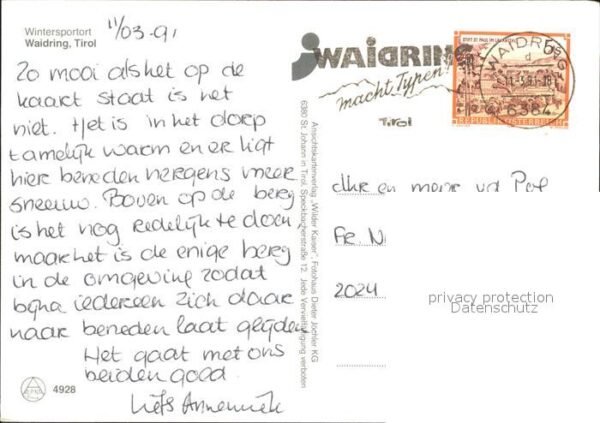 Wintersportort
Waidring, Tirol
11/03-91
Zo mooi als het op de
kaart staat is het
niet. Het is in het dorp
tamelijk warm en er ligt
hier beneden nergens meer
sneeuw. Boven op de berg
is het nog redelijk te doen,
maar het is de enige berg
in de omgeving zodat
bijna iedereen zich daar
naar beneden laat glijden.
Het gaat met ons
beiden goed.
Liefs Annemiek
4928
Ansichtskartenverlag „Wilder Kaiser", Fotohaus Dieter Jöchler KG
6380 St. Johann in Tirol, Speckbacherstraße 12. Jede Vervielfältigung verboten
WAIDRING
macht Typen!
Tirol
STIFT ST. PAUL IM LAVANTTAL
REPUBLIK ÖSTERREICH
WAIDRING
d
11.-3.91-18
6384
dhr en mevr vd Pol
Fr. N
2024
privacy protection
Datenschutz